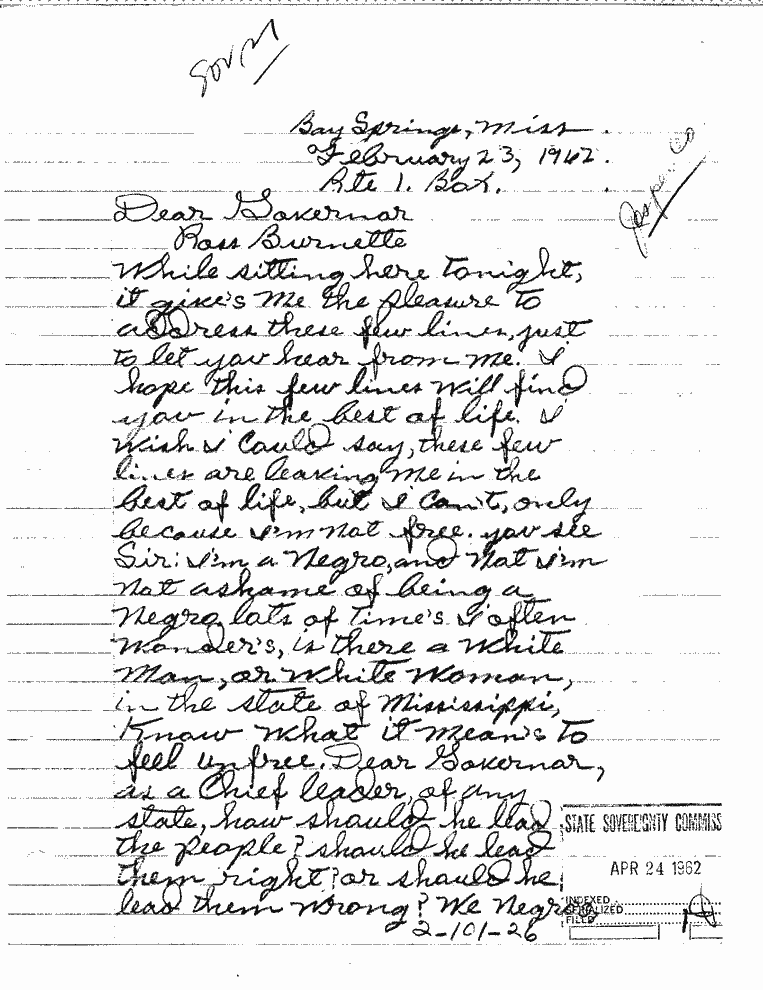 Sov M
Bay Springs, Miss.
February 23, 1962.
Jasper Co
Rte 1. Box.
Dear Governor
Ross Burnette
While sitting here tonight,
it give's me the pleasure to
address these few lines, just
to let you hear from me. I
hope this few lines will find
you in the best of life. I
wish I could say, these few
lines are leaving me in the
best of life, but I can't, only
because I'm not free. you see
Sir: I'm a Negro, and not I'm
not ashame of being a
Negro, lots of time's I often
wonder's, is there a white
Man, or white woman,
in the state of Mississippi,
Know what it mean's to
feel unfree. Dear Governor,
as a Chief leader, of any
state, how should he lead
the people? should he lead
them right? or should he
lead them wrong? We Negroes
2-101-26
STATE SOVEREIGNTY COMMISS
APR 24 1962
INDEXED
SERIALIZED
FILED